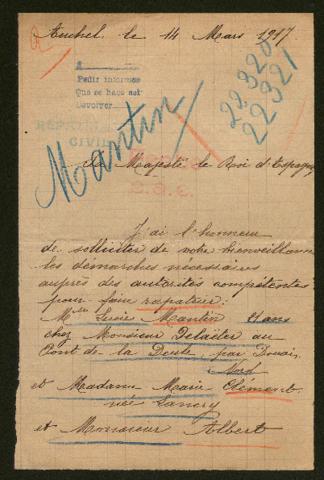 Auchel le 14 Mars 1917
A
Pedir informes
Que se haga así
Devolver
22320
22321
CIVIL
Mantin
Sa Majesté le Roi d'Espagne
J'ai l'honneur
de solliciter de votre bienveillance
les démarches nécessaires
auprès des autorités compétentes
pour faire rapatrier:
Mlle Mantin 11 ans
chez Monsieur Delaëter au
Pont de la Deule par Douai
Nord
et Madame Marie Clément
née
et Monsieur Albert